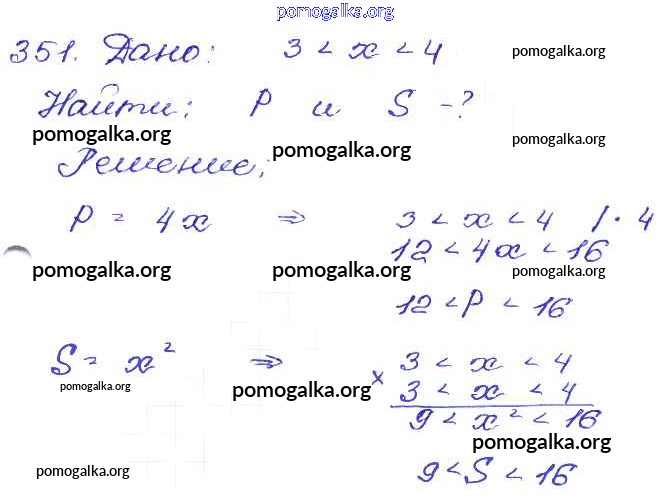 pomogalka.org
351. Дано: 3 < x < 4 pomogalka.org
Найти: P и S - ?
pomogalka.org pomogalka.org pomogalka.org
Решение;
P = 4x ⇒ 3 < x < 4 / · 4
12 < 4x < 16
pomogalka.org pomogalka.org pomogalka.org
12 < P < 16
S = x² ⇒ × 3 < x < 4
pomogalka.org pomogalka.org 3 < x < 4
9 < x² < 16
pomogalka.org
pomogalka.org 9 < S < 16